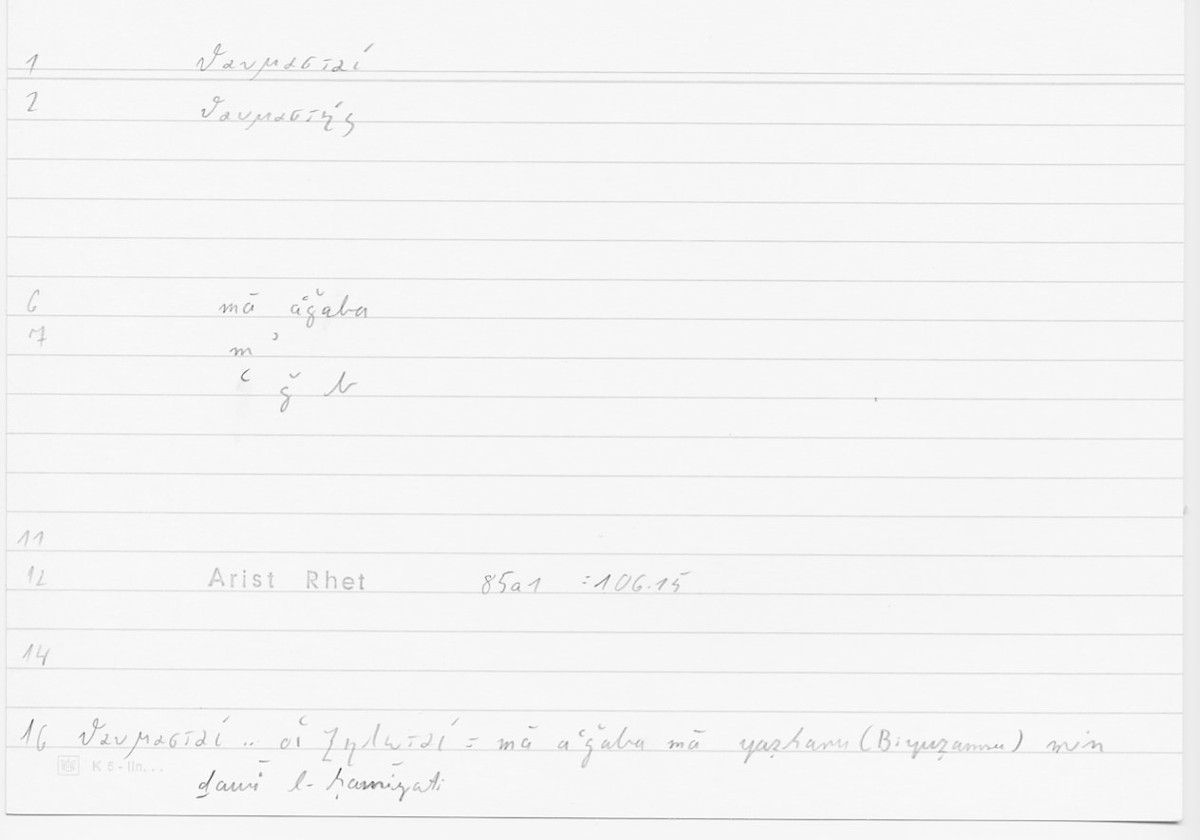 1 θαυμασταί
2 θαυμαστής
6 mā aʿǧaba
7 m ʾ
ʿ ǧ b
11
12 Arist Rhet 85a1 =106.15
14
16 θαυμασταί .. οἱ ζηλωταί = mā aʿǧaba mā (Biyuẓannu) min
K 5 - lin...
ḏawī l-ḥamīyati